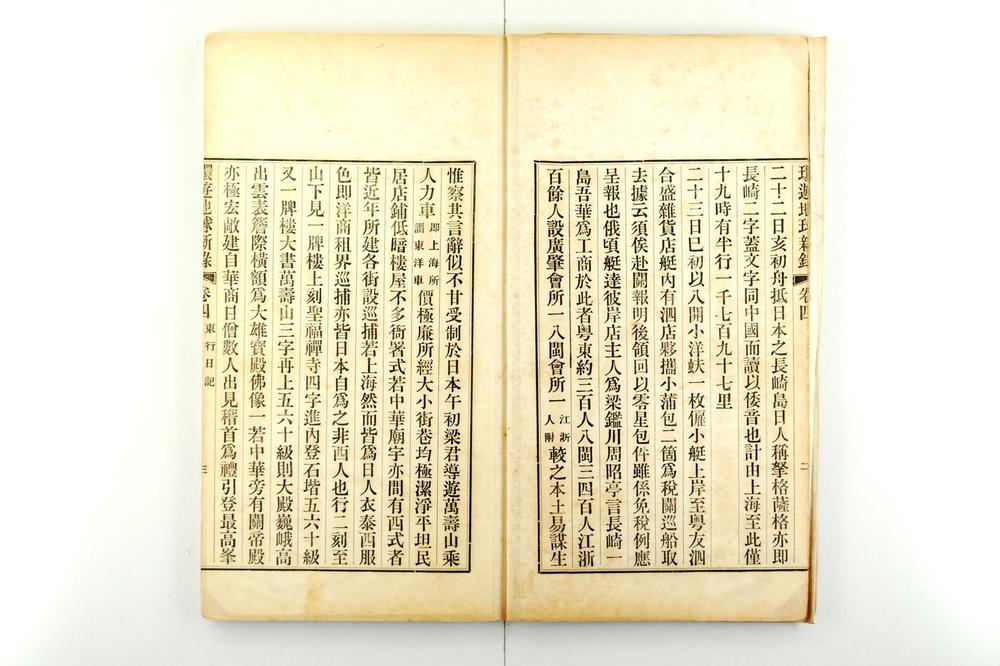 環遊地球新錄 卷四 二
二十二日亥初舟抵日本之長崎島日人稱拏格薩格亦即
長崎二字蓋文字同中國而讀以倭音也計由上海至此僅
十九時有半行一千七百九十七里
二十三日巳初以八開小洋蚨一枚僱小艇上岸至粵友泗
合盛雜貨店艇內有泗店夥攜小蒲包二箇爲稅關巡船取
去據云須俟赴關報明後領回以零星包件雖係免稅例應
呈報也俄頃艇達彼岸店主人爲梁鑑川周昭亭言長崎一
島吾華爲工商於此者粵東約三百人八閩三四百人江浙
百餘人設廣肇會所一八閩會所一江浙人附較之本土易謀生
惟察其言辭似不甘受制於日本午初梁君導遊萬壽山乘
人力車即上海所謂東洋車價極廉所經大小街巷均極潔淨平坦民
居店鋪低暗樓屋不多衙署式若中華廟字亦間有西式者
皆近年所建各街設巡捕若上海然而皆爲日人衣泰西服
色即洋商租界巡捕亦皆日本自爲之非西人也行二刻至
山下見一牌樓上刻聖福禪寺四字進內登石堦五六十級
又一牌樓大書萬壽山三字再上五六十級則大殿巍峨高
出雲表簷際橫額爲大雄寶殿佛像一若中華旁有關帝殿
亦極宏敞建自華商日僧數人出見稽首爲禮引登最高峯
環遊地球新錄 卷四 東行日記 三